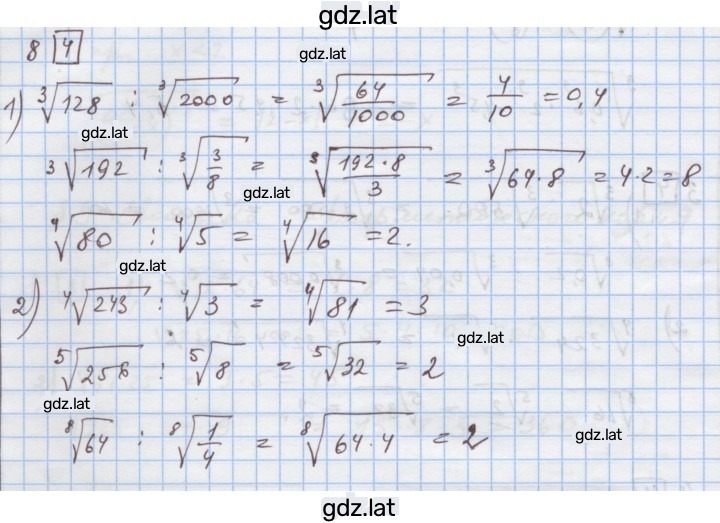 gdz.lat
8 4
gdz.lat
1) ∛128 : ∛2000 = ∛(64/1000) = 4/10 = 0,4
gdz.lat
∛192 : ∛(3/8) = ∛(192·8/3) = ∛(64·8) = 4·2=8
gdz.lat
∜80 : ∜5 = ∜16 = 2.
gdz.lat
2) ∜243 : ∜3 = ∜81 = 3
gdz.lat
⁵√256 : ⁵√8 = ⁵√32 = 2
gdz.lat
⁸√64 : ⁸√(1/4) = ⁸√(64·4) = 2
gdz.lat
gdz.lat